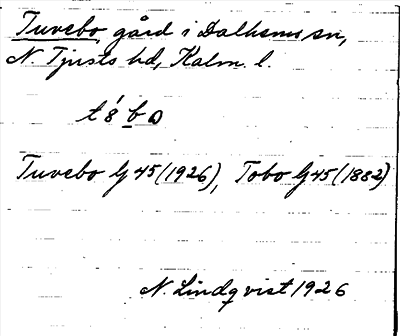 Tuvebo, gård i Dalhems sn,
N. Tjusts hd, Kalm. l.
Tuvebo G 45 (1926), Tobo G 45 (1882)
N. Lindqvist 1926